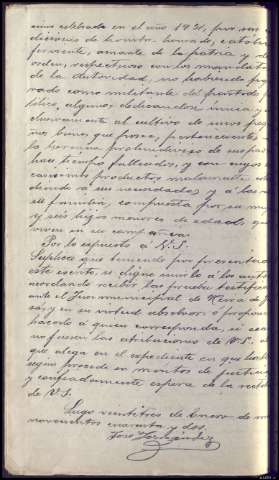 cina celebrada en el año 1931, por ser
de honrada catolico
ferviente, amante de la patria y del
orden, respetuoso con los mandatos
de la autoridad, no habiendo
rado como militante del partido po
litico alguno, dedicandose unica y ex
clusivamente al cultivo de unos peque
ños bienes que posee, pertenecientes
la herencia proindivisa de sus padres
hace tiempo fallecidos, y con cuyos
productos malamente
a sus necesidades y á las
de su familia, compuesta por su mujer
y seis hijos menores de edad que
viven en su compañia.
Por lo expuesto á V.S.
Suplica que teniendo por presentado
este escrito, se digne unirlo á los autos
recibir las pruebas testifical
ante el Juez municipal de Riera de
y en su virtud absolver o proponer
hacerlo á quien corresponda, si esa
no fuesen las atribuciones de V.S. al
que alega en el expediente en que
según procede en méritos de justicia
y confiadamente espera de la rectitud
de V.S.
Lugo veintitres de Enero de mil
novecientos cuarenta y dos.
José Fernández